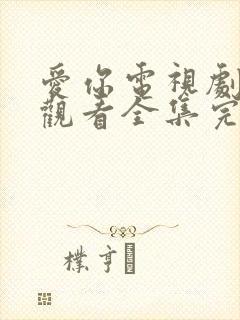 愛你電視劇
觀看全集完
樸亨